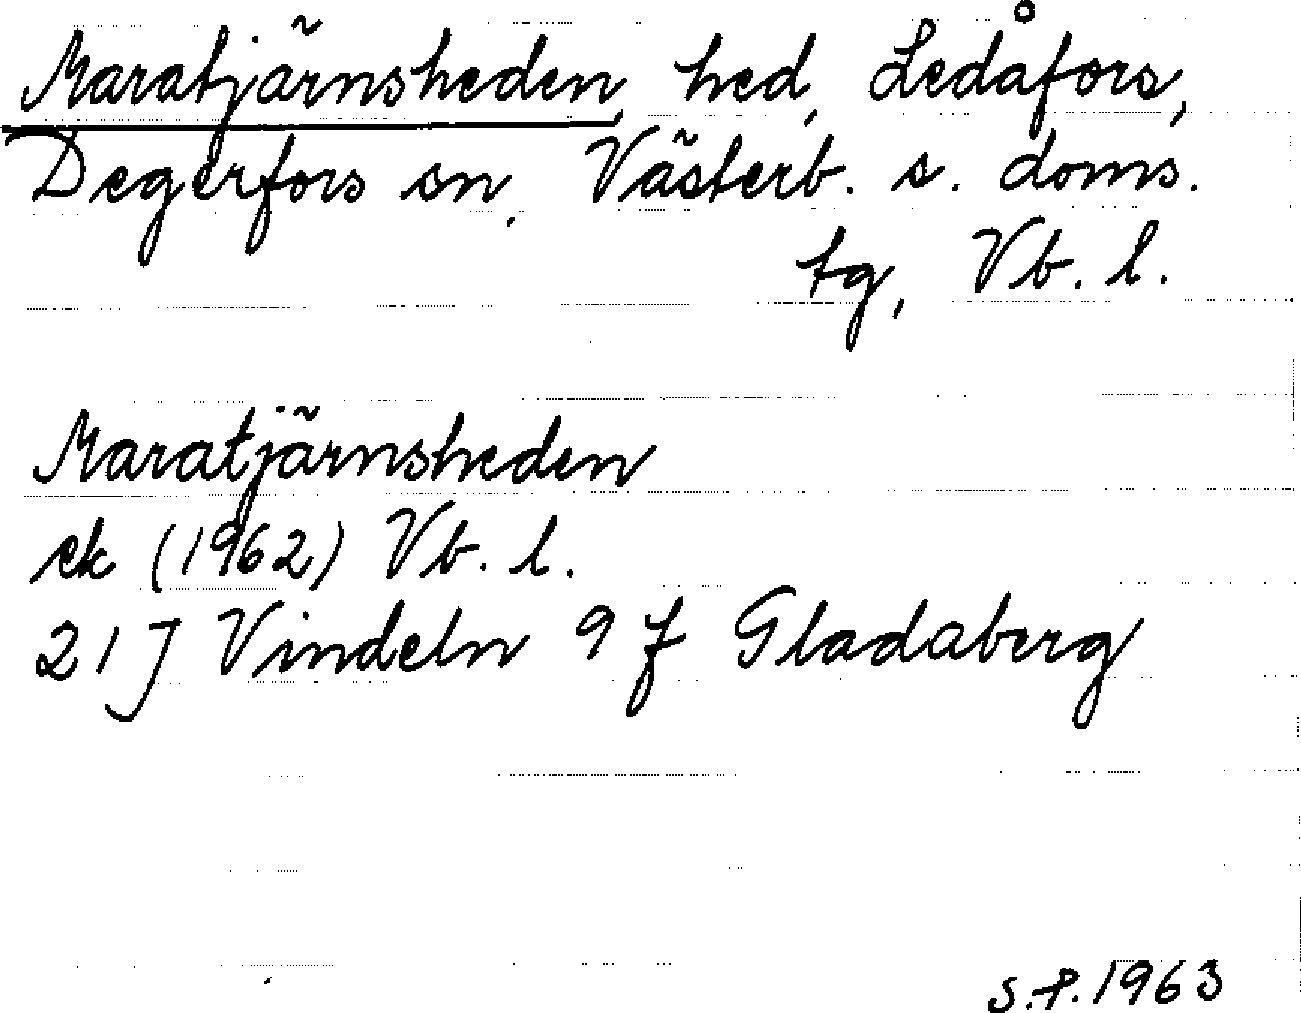 Maratjärnsheden, hed, Ledåfors,
Degerfors sn, Västerb. s. doms.
tg, Vb. l.
Maratjärnsheden
ek (1962) Vb. l.
21J Vindeln 9 f Gladaberg
S.P. 1963